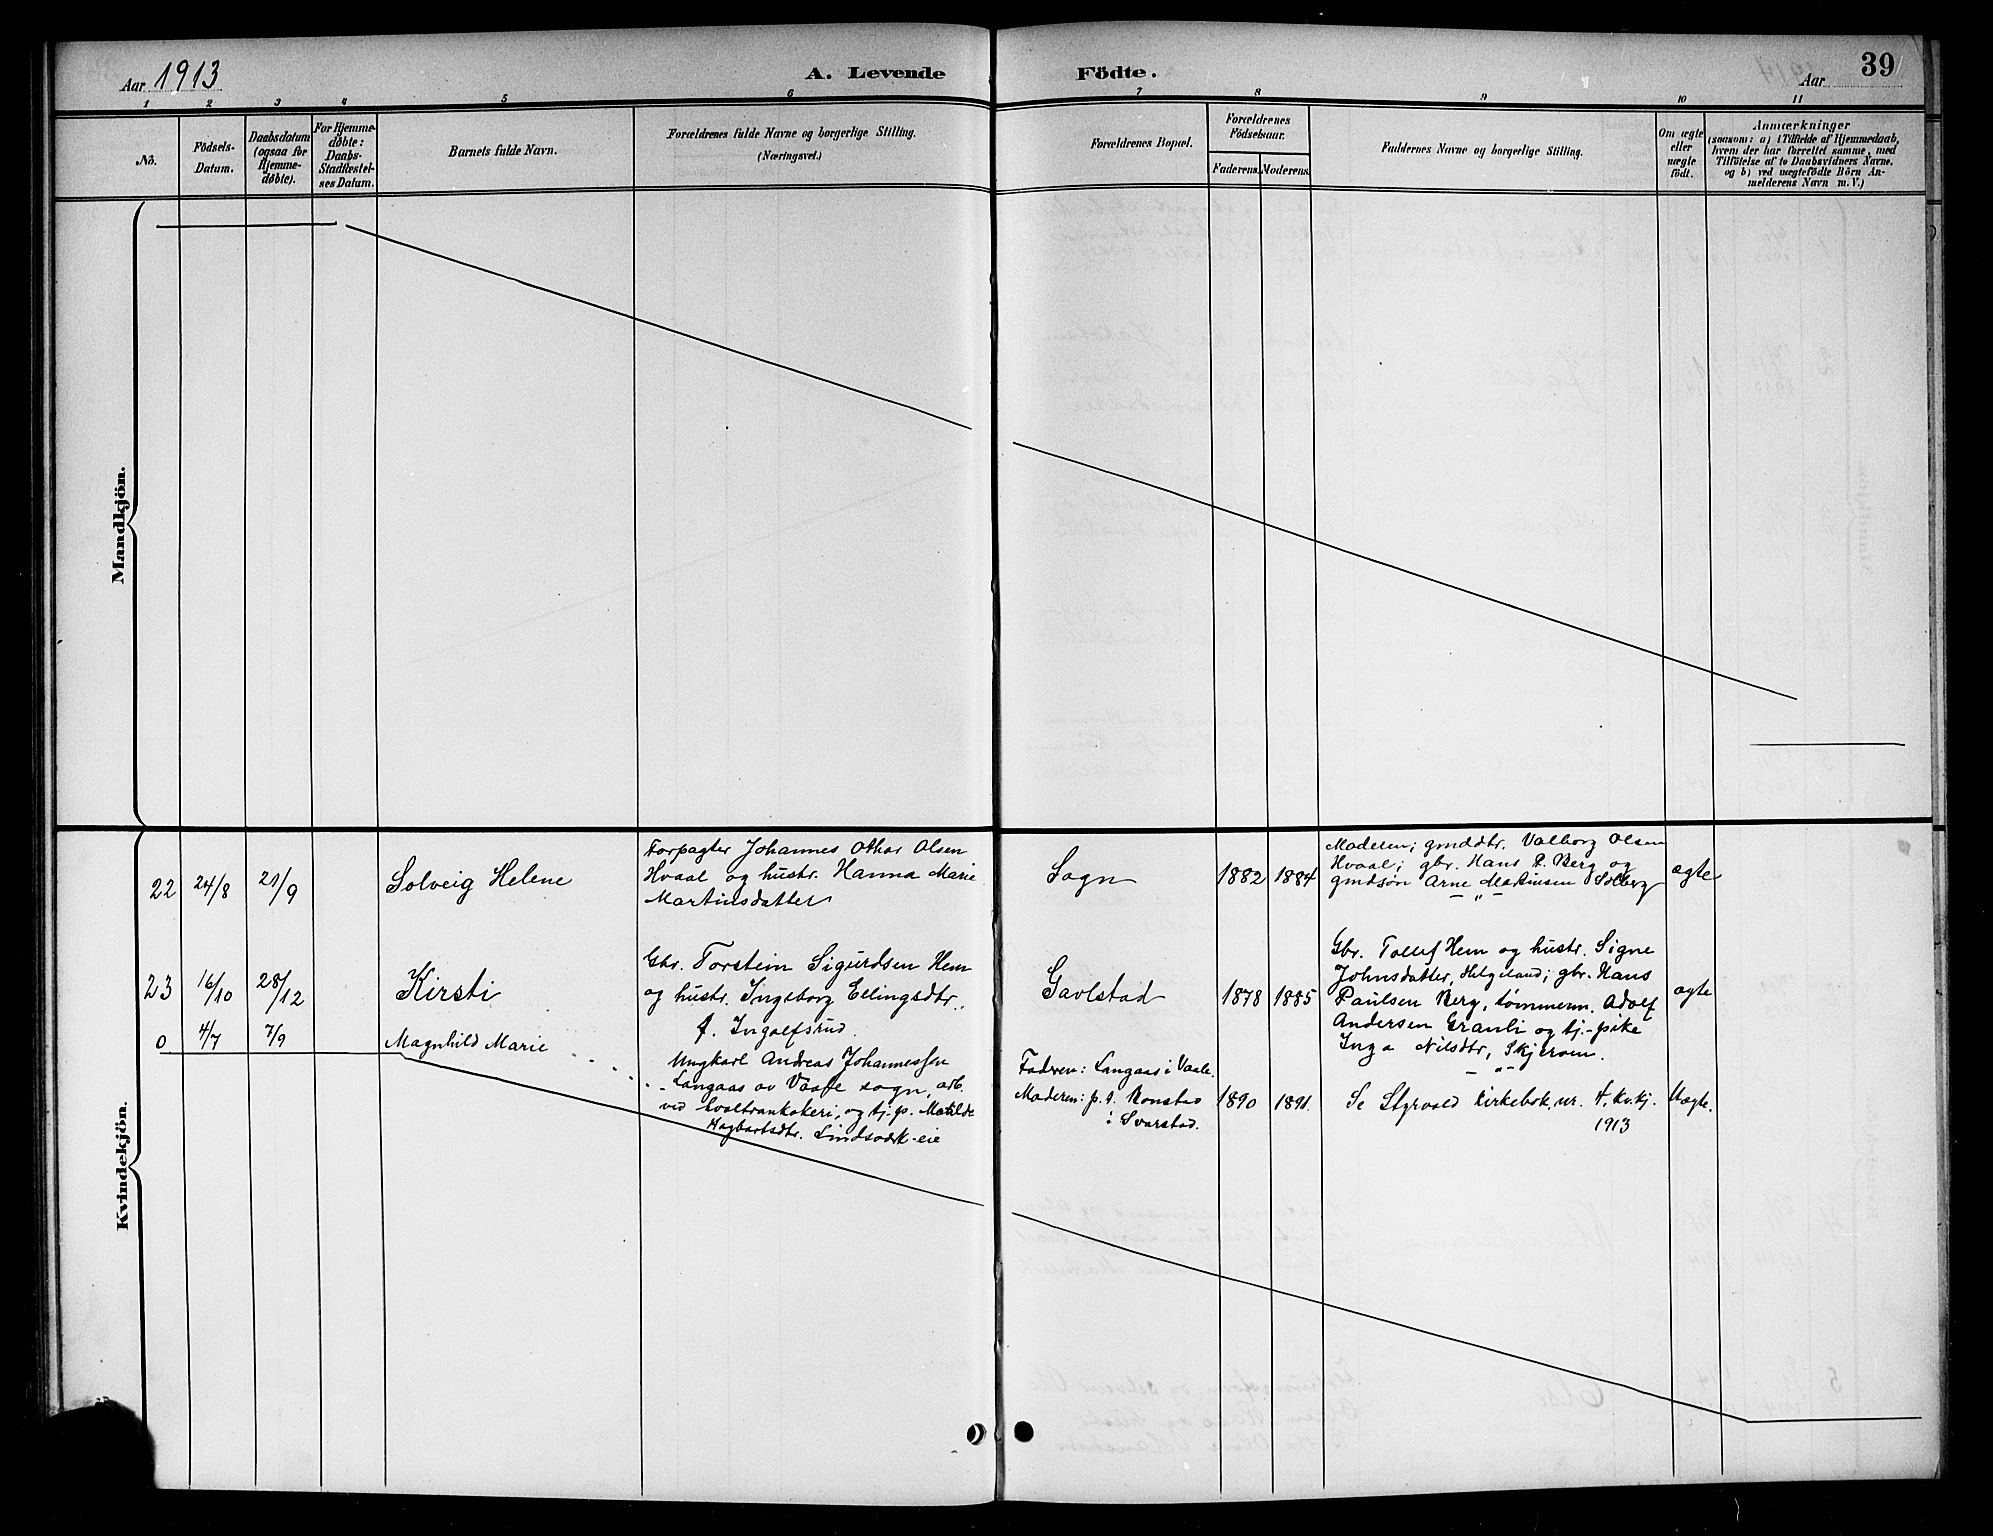 Aar 1913
A. Levende Födte.
Aar
39
1 2 3 4 5 6 7 8 9 10 11
No.
Födsels-
Datum.
Daabsdatum
(ogsaa for
Hjemme-
døbte).
For Hjemme-
døbte:
Daabs-
Stadfæstel-
ses Datum.
Barnets fulde Navn.
Forældrenes fulde Navne og borgerlige Stilling.
(Næringsvei.)
Forældrenes Bopæl.
Forældrenes
Födselsaar.
Faderens.
Moderens.
Faddernes Navne og borgerlige Stilling.
Om ægte
eller
uægte
födt.
Anmærkninger
(saasom: a) i Tilfælde af Hjemmedaab,
hvem der har forrettet samme, med
Tilföielse af to Daabsvidners Navne,
og b) ved uægtefödte Börn An-
melderens Navn m. V.)
Mandkjön.
Kvindekjön.
22 24/8 21/9 Solveig Helene
Forpagter Johannes Othar Olsen
Hvaal og hustr. Hanna Marie
Martinsdatter
Sogn 1882 1884
Moderen; gmddtr. Valborg Olsen
Hvaal; gbr. Hans P. Berg og
gmdsøn Arne Martinsen Solberg
— „ —
ægte
23 16/10 28/12 Kirsti
Gbr. Torstein Sigurdsen Hem
og hustr. Ingeborg Ellingsdtr.
f. Ingolfsrud.
Gavlstad 1878 1885
Gbr. Tollef Hem og hustr. Signe
Johnsdatter, Helgeland; gbr. Hans
Paulsen Berg, tømmerm. Adolf
Andersen Granli og tj.-pike
Inga Nilsdtr, Skjerven.
— „ —
ægte
0 4/7 7/9 Magnhild Marie
Ungkarl Andreas Johannessen
Langaas av Vaale sogn, arb.
ved hvaltrankokeri, og tj.p. Matilde
Hagbartsdtr. Lindsværk-eie
Faderen: Langaas i Vaale.
Moderen: p. t. Ronstad
i Svarstad.
1890 1891.
Se Styrvold kirkebok, nr. 4, kv.kj.
1913
Uægte.